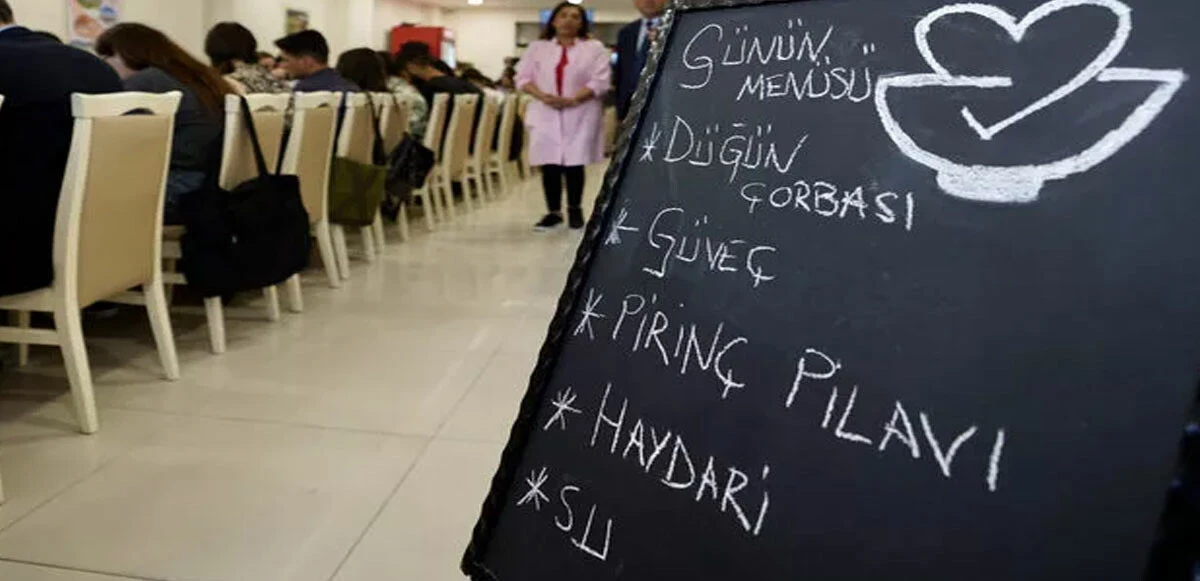 GÜNÜN
MENÜSÜ
*DÜĞÜN
ÇORBASI
*GÜVEÇ
*PİRİNÇ PİLAVI
*HAYDARİ
*SU